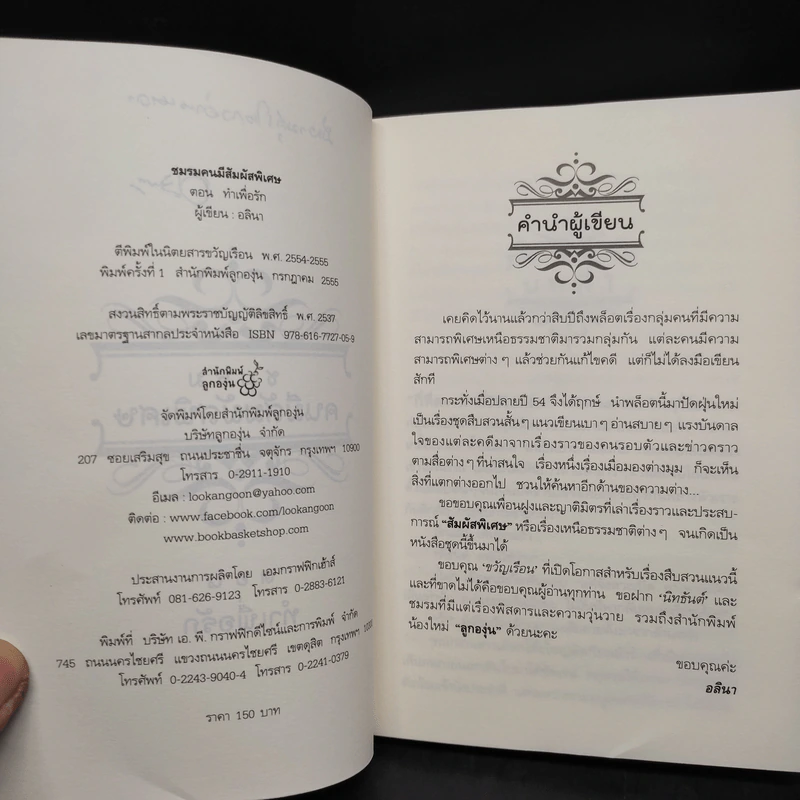 ชมรมคนมีสัมผัสพิเศษ
ตอน ทำเพื่อรัก
ผู้เขียน : อลินา
ตีพิมพ์ในนิตยสารขวัญเรือน พ.ศ. 2554-2555
พิมพ์ครั้งที่ 1 สำนักพิมพ์ลูกองุ่น กรกฎาคม 2555
สงวนสิทธิ์ตามพระราชบัญญัติลิขสิทธิ์ พ.ศ. 2537
เลขมาตรฐานสากลประจำหนังสือ ISBN 978-616-7727-05-9
สำนักพิมพ์
ลูกองุ่น
จัดพิมพ์โดยสำนักพิมพ์ลูกองุ่น
บริษัทลูกองุ่น จำกัด
207 ซอยเสริมสุข ถนนประชาชื่น จตุจักร กรุงเทพฯ 10900
โทรสาร 0-2911-1910
อีเมล : lookangoon@yahoo.com
ติดต่อ : www.facebook.com/lookangoon
www.bookbasketshop.com
ประสานงานการผลิตโดย เอมกราฟฟิกเฮ้าส์
โทรศัพท์ 081-626-9123 โทรสาร 0-2883-6121
พิมพ์ที่ บริษัท เอ. พี. กราฟฟิกดีไซน์และการพิมพ์ จำกัด
745 ถนนนครไชยศรี แขวงถนนนครไชยศรี เขตดุสิต กรุงเทพฯ 10300
โทรศัพท์ 0-2243-9040-4 โทรสาร 0-2241-0379
ราคา 150 บาท
คำนำผู้เขียน
เคยคิดไว้นานแล้วกว่าสิบปีถึงพล็อตเรื่องกลุ่มคนที่มีความ
สามารถพิเศษเหนือธรรมชาติมารวมกลุ่มกัน แต่ละคนมีความ
สามารถพิเศษต่าง ๆ แล้วช่วยกันแก้ไขคดี แต่ก็ไม่ได้ลงมือเขียน
สักที
กระทั่งเมื่อปลายปี 54 จึงได้ฤกษ์ นำพล็อตนี้มาปัดฝุ่นใหม่
เป็นเรื่องชุดสืบสวนสั้นๆ แนวเขียนเบาๆ อ่านสบายๆ แรงบันดาล
ใจของแต่ละคดีมาจากเรื่องราวของคนรอบตัวและข่าวคราว
ตามสื่อต่างๆ ที่น่าสนใจ เรื่องหนึ่งเรื่องเมื่อมองต่างมุม ก็จะเห็น
สิ่งที่แตกต่างออกไป ชวนให้ค้นหาอีกด้านของความต่าง...
ขอขอบคุณเพื่อนฝูงและญาติมิตรที่เล่าเรื่องราวและประสบ-
การณ์ “สัมผัสพิเศษ” หรือเรื่องเหนือธรรมชาติต่างๆ จนเกิดเป็น
หนังสือชุดนี้ขึ้นมาได้
ขอบคุณ ‘ขวัญเรือน’ ที่เปิดโอกาสสำหรับเรื่องสืบสวนแนวนี้
และที่ขาดไม่ได้คือขอบคุณผู้อ่านทุกท่าน ขอฝาก ‘นิทธันต์’ และ
ชมรมที่มีแต่เรื่องพิสดารและความวุ่นวาย รวมถึงสำนักพิมพ์
น้องใหม่ “ลูกองุ่น” ด้วยนะคะ
ขอบคุณค่ะ
อลินา